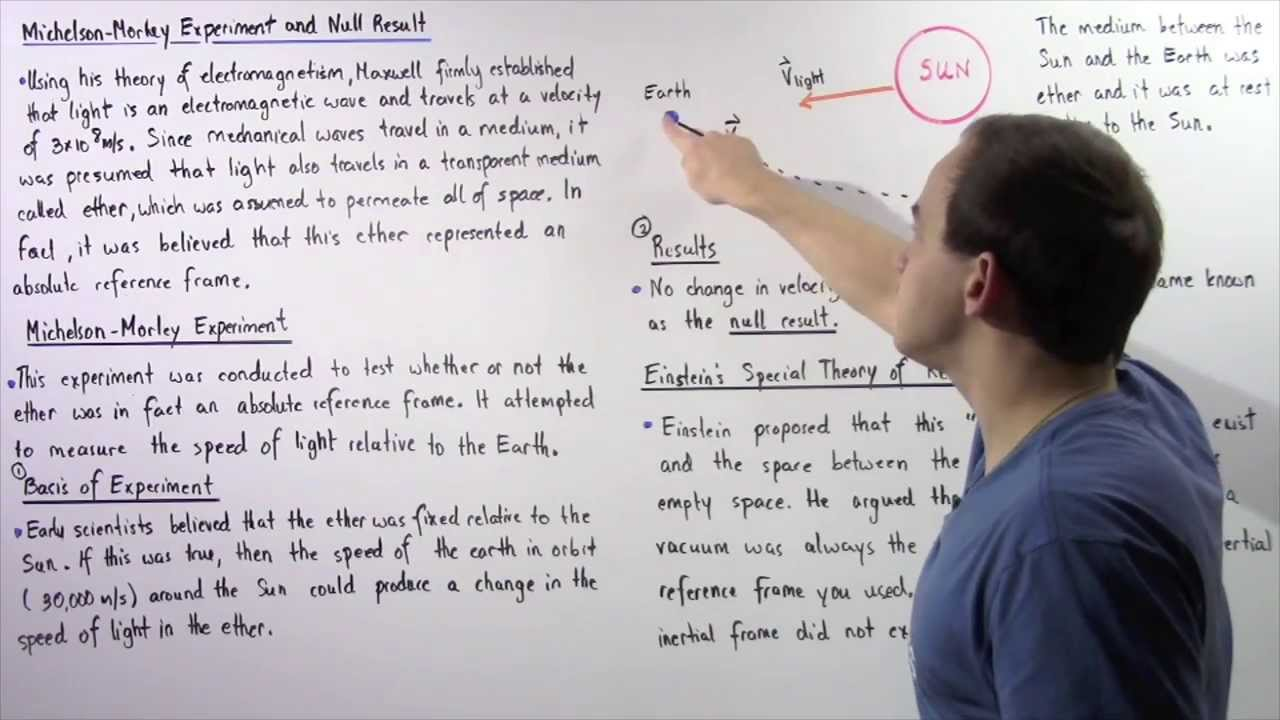 Michelson-Morley Experiment and Null Result
• Using his theory of electromagnetism, Maxwell firmly established
that light is an electromagnetic wave and travels at a velocity
of 3×10⁸ m/s. Since mechanical waves travel in a medium, it
was presumed that light also travels in a transparent medium
called ether, which was assumed to permeate all of space. In
fact, it was believed that this ether represented an
absolute reference frame.
Michelson-Morley Experiment
• This experiment was conducted to test whether or not the
ether was in fact an absolute reference frame. It attempted
to measure the speed of light relative to the Earth.
①
Basis of Experiment
• Early scientists believed that the ether was fixed relative to the
Sun. If this was true, then the speed of the earth in orbit
(30,000 m/s) around the Sun could produce a change in the
speed of light in the ether.
Earth
V light
SUN
V
The medium between the
Sun and the Earth was
ether and it was at rest
to the Sun.
②
Results
• No change in velocity
ame known
as the null result.
Einstein's Special Theory of
• Einstein proposed that this "
exist
and the space between the
empty space. He argued
a
vacuum was always the
ertial
reference frame you used.
inertial frame did not